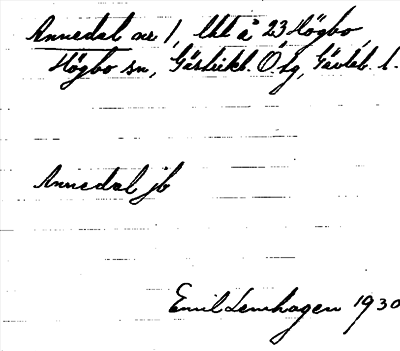 Annedal nr 1, lht å 23 Högbo,
Högbo sn, Gästrikl. Ö. tg, Gävleb. l.
Annedal jb
Emil Lenhagen 1930